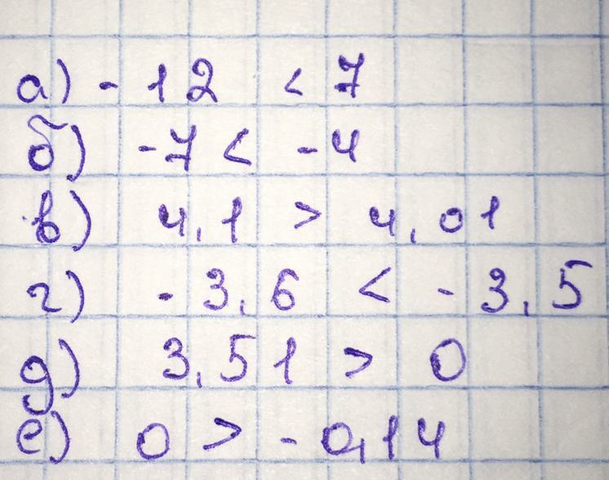 а) - 12 < 7
б) -7 < -4
в) 4,1 > 4,01
г) -3,6 < -3,5
д) 3,51 > 0
е) 0 > -0,14